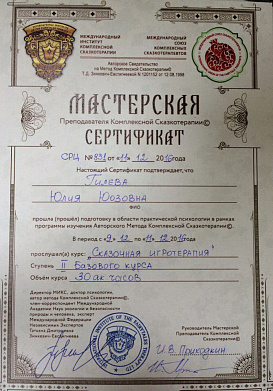 МЕЖДУНАРОДНЫЙ
ИНСТИТУТ
КОМПЛЕКСНОЙ
СКАЗКОТЕРАПИИ
МЕЖДУНАРОДНЫЙ
СОЮЗ
КОМПЛЕКСНЫХ
СКАЗКОТЕРАПЕВТОВ
Авторское Свидетельство
на Метод Комплексной Сказкотерапии©
Т.Д. Зинкевич-Евстигнеевой № 1201152 от 12.08.1998
МАСТЕРСКАЯ
Преподавателя Комплексной Сказкотерапии©
СЕРТИФИКАТ
СРЦ №831 от «11» 12 2016 года
Настоящий Сертификат подтверждает, что
Гилева
Юлия Юозовна
ФИО
прошла (прошёл) подготовку в области практической психологии в рамках
программы изучения Авторского Метода Комплексной Сказкотерапии©
В период с «9» 12 по «11» 12 2016 года
прослушал(а) курс: «Сказочная игротерапия»
Ступень II Базового курса
Объём курса 30 ак. часов
Директор МИКС, доктор психологии,
автор метода Комплексной Сказкотерапии©,
член-корреспондент Международной
Академии Наук экологии и Безопасности
природы и человека, эксперт
Международной Федерации
Независимых Экспертов
Татьяна Дмитриевна
Зинкевич-Евстигнеева
Руководитель Мастерской
Преподаватель Комплексной
Сказкотерапии©
И.В. Приходкин